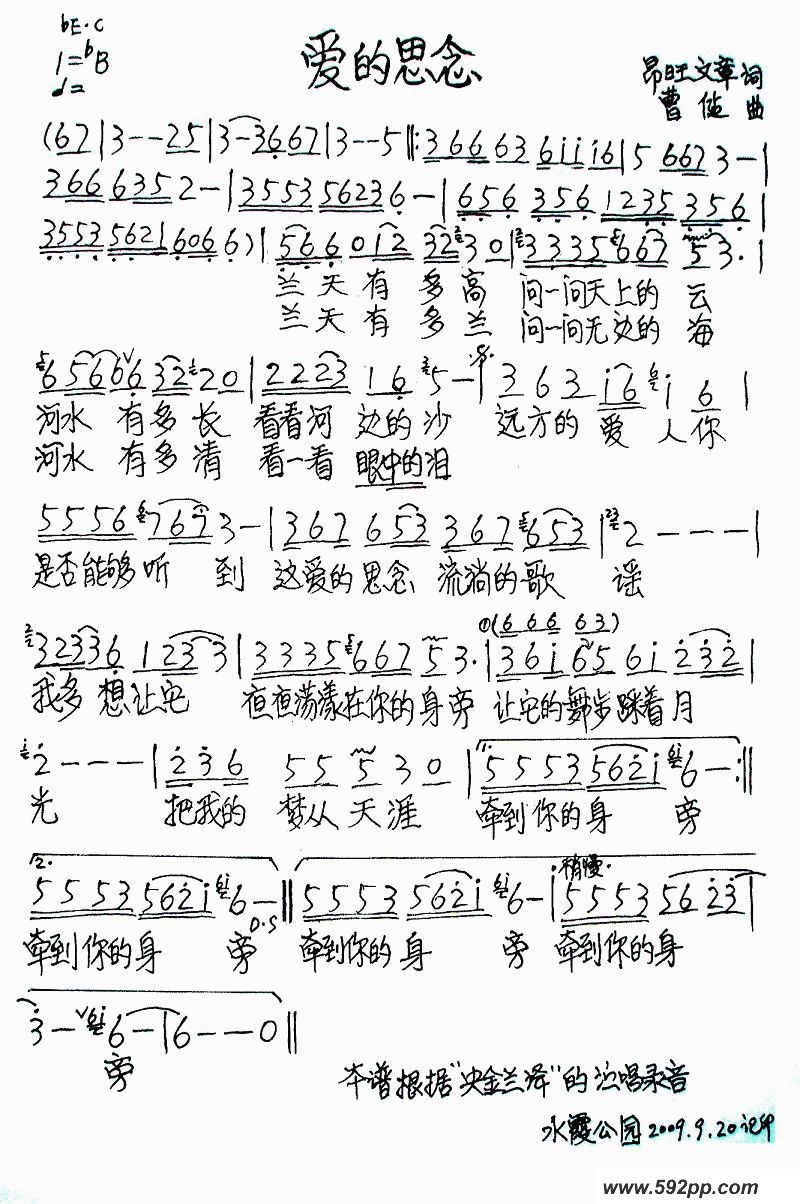 bE·C
1=bB
爱的思念
昂旺文章词
曹 曲
(67|3--25|3-3667|3--5‖:366 63 6iii6|5 667 3-|
366 635 2-|3553 5623 6-|656 356 1235 356|
3553 5621 606 6)|566 012 32 30|3335 667 53·|
兰天有多高 问一问天上的云
兰天有多兰 问一问无边的海
6566 6 32 20|2223 16 5-|3 6 3 i6 i 6|
河水 有多长 看看河 边的沙 远方的 爱 人你
河水 有多清 看一看 眼中的泪
5556 767 3-|367 653 367 653|2---|
是否能够听 到 这爱的思念 流淌的歌 谣
①(6 6 6 6 3)
32336 123 3|3335 667 53·|36i 65 6i 232|
我多想让它 夜夜荡漾在你的身旁 让它的舞步踩着月
2---|236 55 5 3 0|1. 5553 562i 6-:‖
光 把我的 梦从 天涯 牵到你的身 旁
2. 5553 562i 6-‖5553 562i 6-|稍慢 5553 56 23|
D.S
牵到你的身 旁 牵到你的身 旁 牵到你的身
3-6-|6--0‖
旁
本谱根据"央金兰泽"的演唱录音
水霞公园2009.9.20记
www.592pp.com